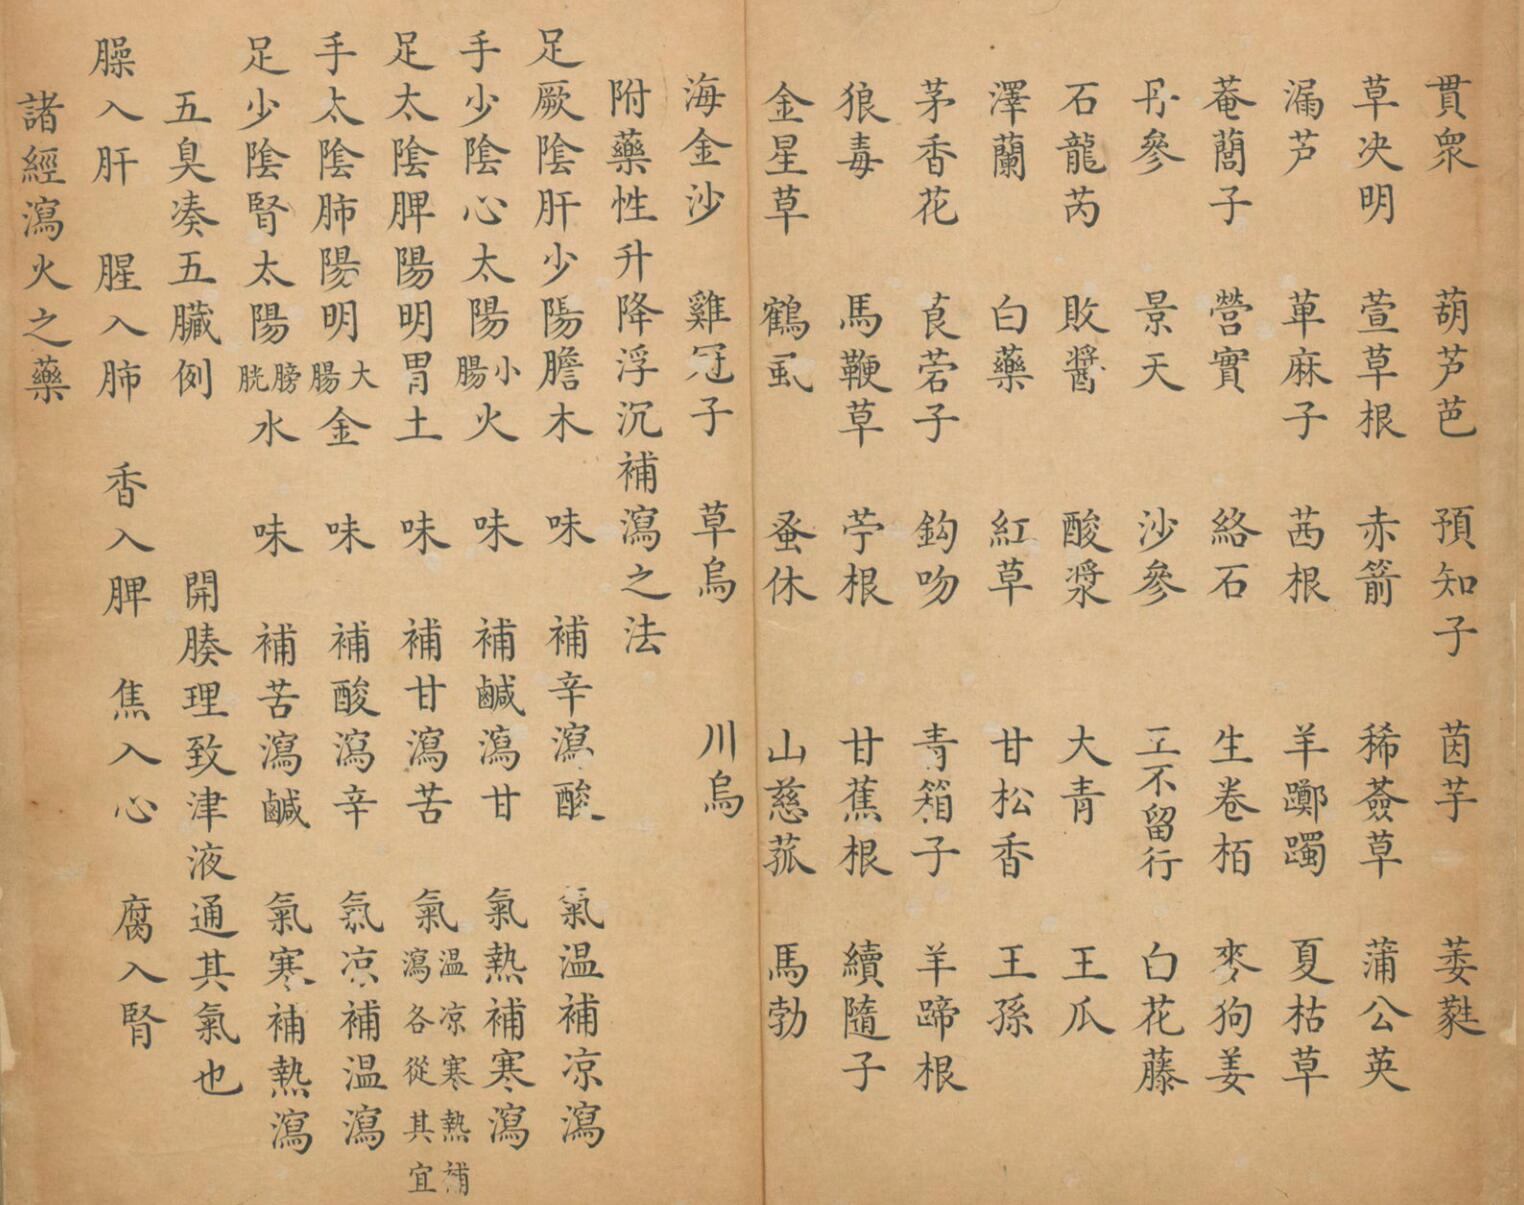 貫衆 葫芦芭 預知子 茵芋 萎蕤
草决明 萱草根 赤箭 稀薟草 蒲公英
漏芦 萆麻子 茜根 羊躑躅 夏枯草
菴䕡子 營實 絡石 生卷栢 麥狗姜
丹參 景天 沙參 王不留行 白花藤
石龍芮 敗醬 酸漿 大青 王瓜
澤蘭 白藥 紅草 甘松香 王孫
茅香花 莨菪子 鈎吻 青箱子 羊蹄根
狼毒 馬鞭草 苧根 甘蕉根 續隨子
金星草 鶴虱 蚤休 山慈菰 馬勃
海金沙 雞冠子 草烏 川烏
附藥性升降浮沉補瀉之法
足厥陰肝少陽膽木 味 補辛瀉酸 氣温補凉瀉
手少陰心太陽小腸火 味 補鹹瀉甘 氣熱補寒瀉
足太陰脾陽明胃土 味 補甘瀉苦 氣温凉寒熱補瀉各從其宜
手太陰肺陽明大腸金 味 補酸瀉辛 氣凉補温瀉
足少陰腎太陽膀胱水 味 補苦瀉鹹 氣寒補熱瀉
五臭凑五臟例 開腠理致津液通其氣也
臊入肝 腥入肺 香入脾 焦入心 腐入腎
諸經瀉火之藥